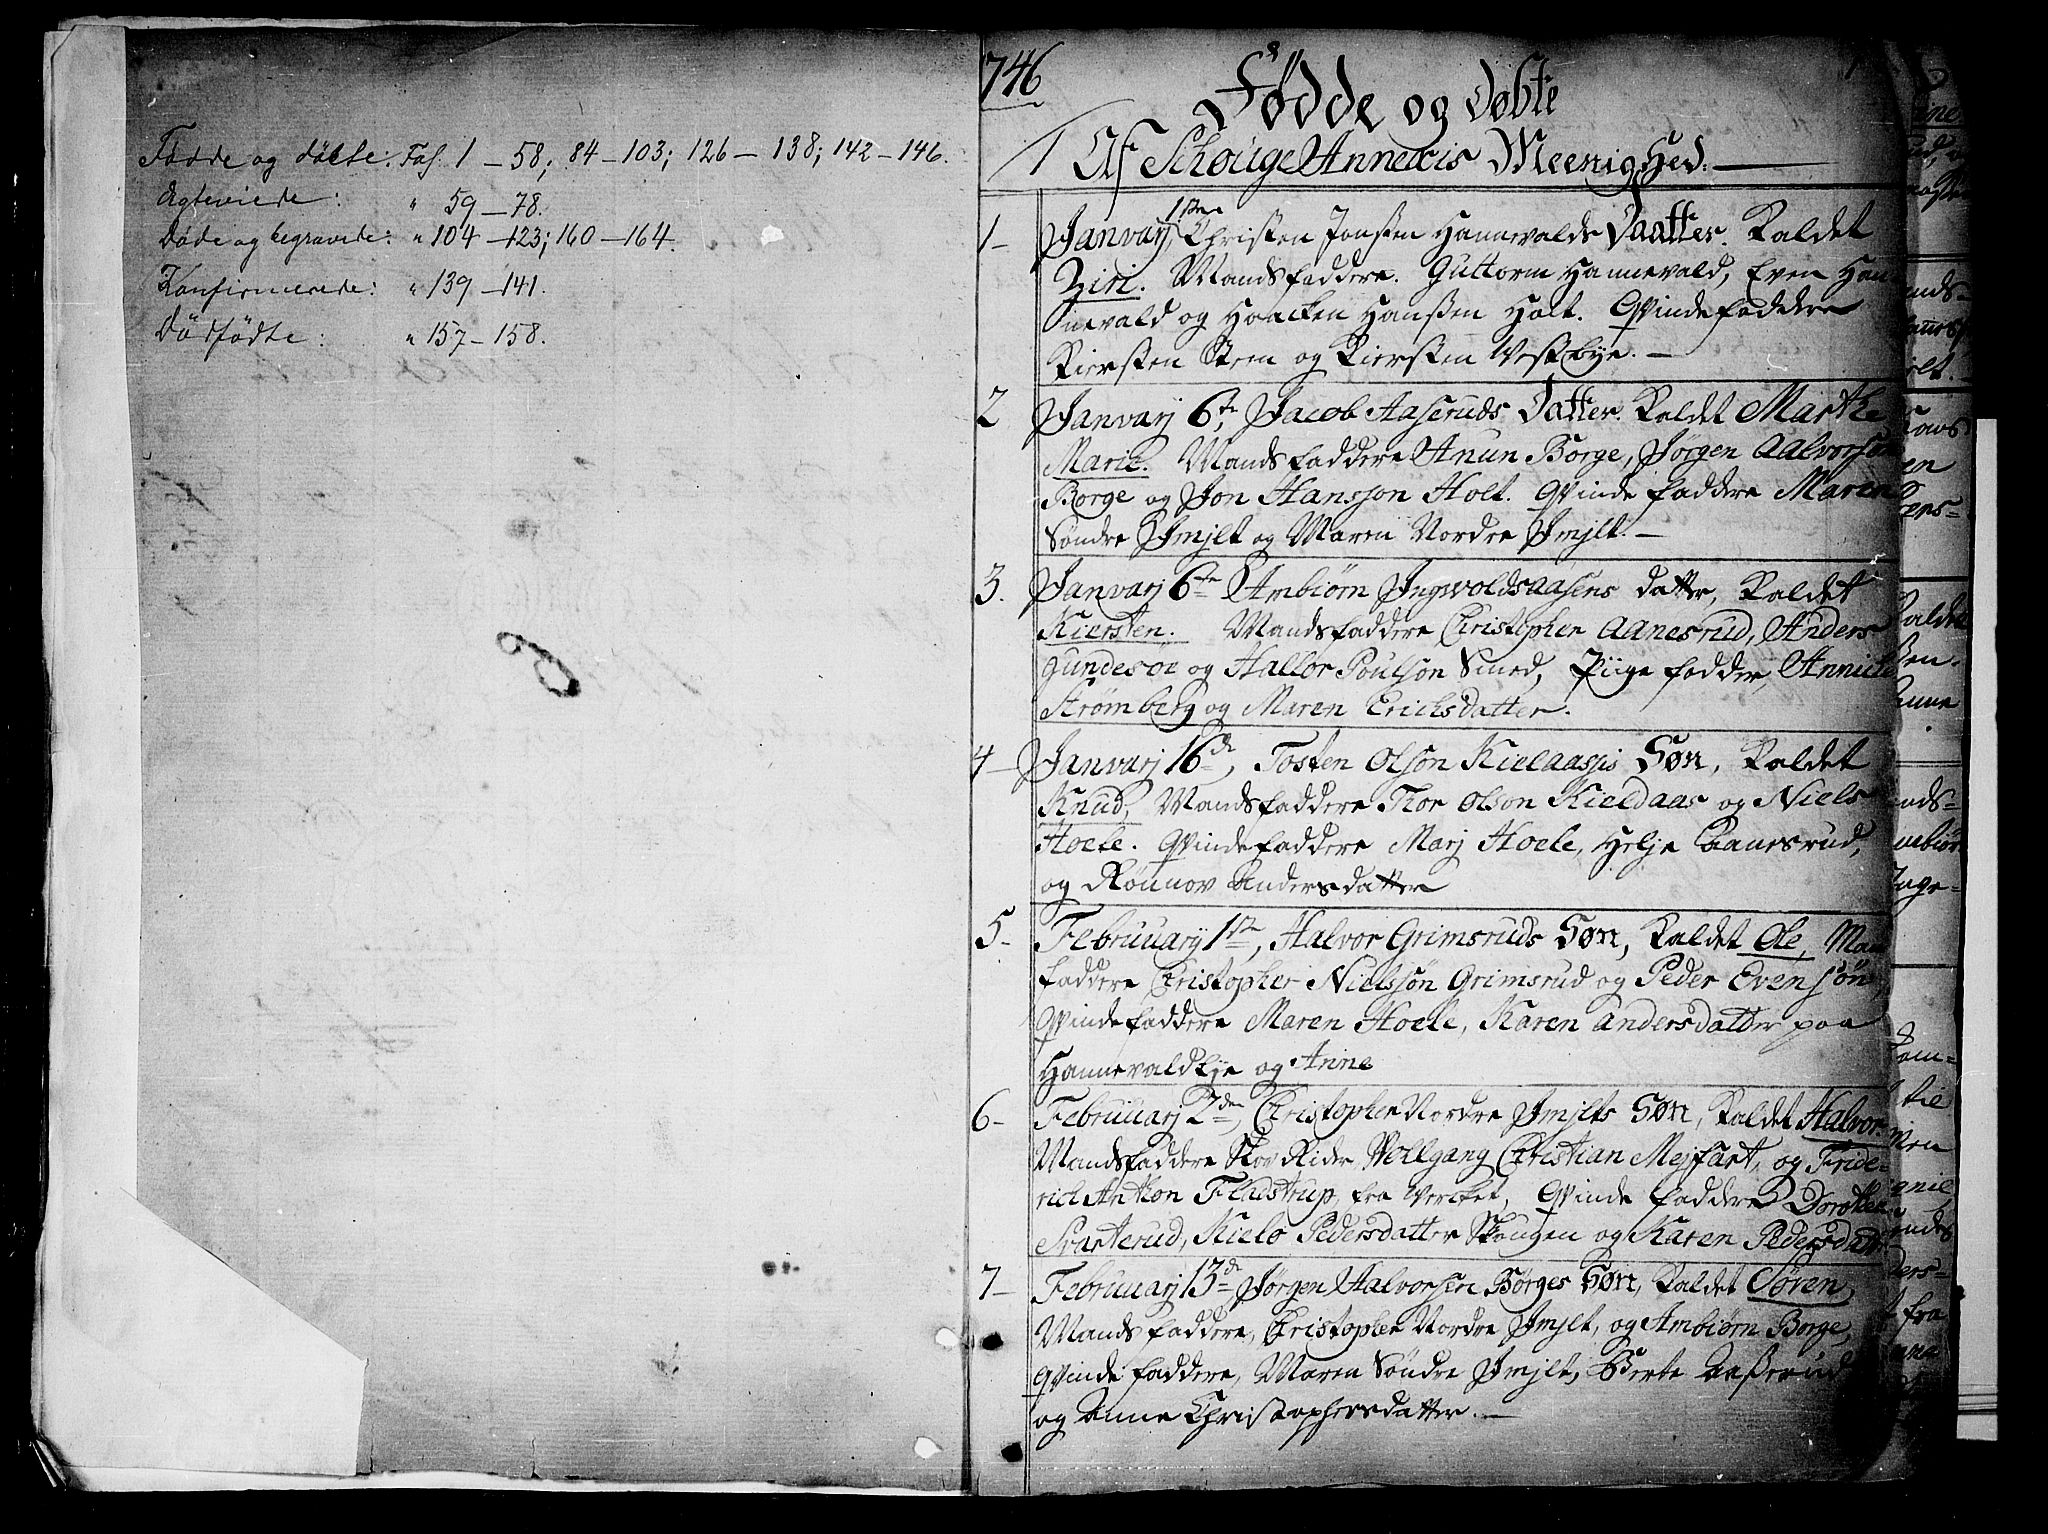 Fødde og döbte: Fol. 1 – 58; 84 – 103; 126 – 138; 142 – 146.
Ægteviede: " 59 – 78.
Döde og begravede: " 104 – 123; 160 – 164.
Konfirmerede: " 139 – 141.
Dödfødte: " 157 – 158.
746
Fødde og Døbte
Af Schouge Annexis Meenighed.
1 – Januarj 1ste Christen Jonsen Hannevalds Daatter. Kaldet
Ziri. Mandsfaddere. Guttorm Hannevald, Even Han
nevald og Haacken Hansen Holt. Qvindefaddere
Kiersten Stem og Kiersten Vestbye. –
2 Januarj 6te, Jacob Aaseruds Datter. Kaldet Marthe
Marie. Mandsfaddere Anun Borge, Jørgen Aalvorsøn
Borge og Jon Hanssøn Holt. Qvinde faddere Maren
Søndre Jmjlt og Maren Nordre Jmjlt. –
3. Januarj 6te Ambiörn Jngwoldsaasens datter, Kaldet
Kiersten. Mandsfaddere Christopher Aanesrud, Anders
Gundesöe og Hallor Poulson Smed, Piige fadder, Annicke
Strömberg og Maren Erichsdatter.
4 – Januarj 16de, Tosten Olsøn Kielaassis Søn, Kaldet
Knud, Mandsfaddere Thor Olson Kieldaas og Niels
Hoele. Qvindefaddere Marj Hoele, Helje Aanesrud,
og Rönnov Andersdatter
5 – Februuarij 1ste, Halvor Grimsruds Søn, Kaldet Ole, Man
faddere Christopher Nielssøn Grimsrud og Peder Evensøn
Qvindefaddere Maren Hoele, Karen Andersdatter paa
Hannevaldeje og Anne
6 – Februuarj 2den Christopher Nordre Jmjlts Søn, Kaldet Halvor.
Mandsfaddere Skov Rider Wollgang Christian Mejfart, og Fride-
rich Anthon Fladstrup fra Vercket, Qvinde faddere Dorothea
Svarterud, Kielo Pedersdatter Skougen og Karen Pedersdatt
7 – Februuarj 13de Jørgen Halvorsen Börges Søn, Kaldet Søren,
Mands faddere, Christopher Nordre Jmjlt, og Ambiörn Borge,
Qvinde faddere, Maren Söndre Jmjlt, Berte Aasserud
og Anne Christophersdatter. –